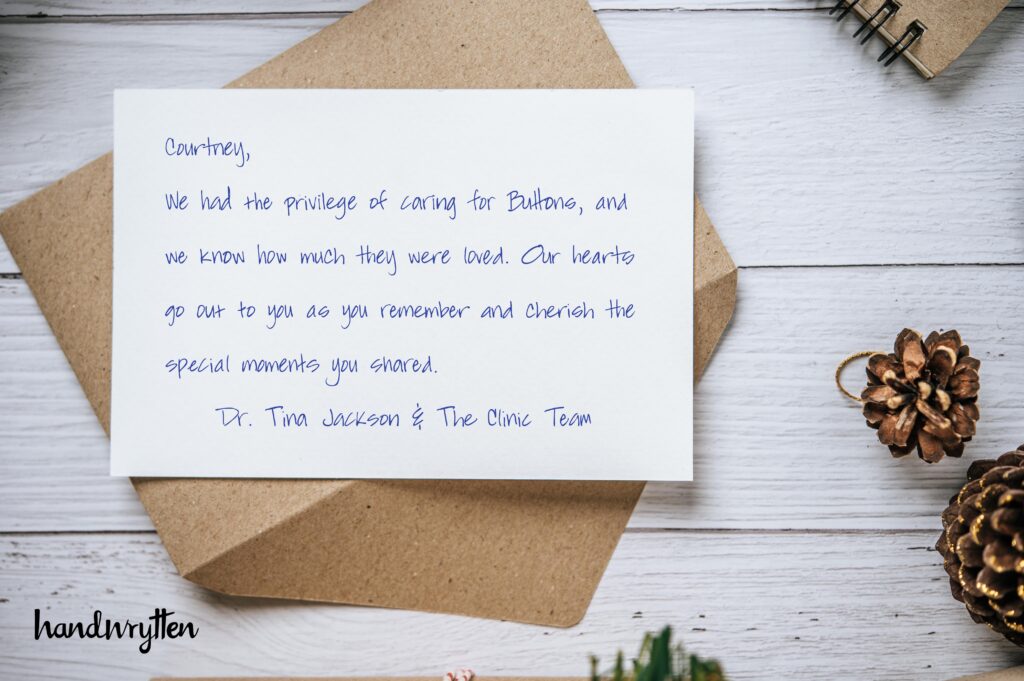 Courtney,
We had the privilege of caring for Buttons, and
we know how much they were loved. Our hearts
go out to you as you remember and cherish the
special moments you shared.
Dr. Tina Jackson & The Clinic Team
handwrytten